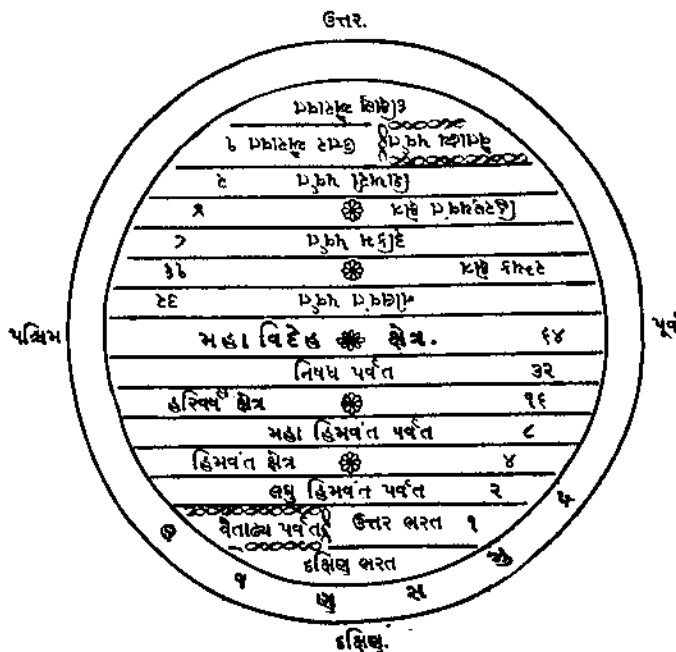 ઉત્તર.
દક્ષિણ ઐરાવત
ઉત્તર ઐરાવત ૧ વૈતાઢ્ય પર્વત
પર્વત ૨
ક્ષેત્ર ૪
પર્વત ૮
રમ્યક ક્ષેત્ર ૧૬
નીલવંત પર્વત ૩૨
પશ્ચિમ
મહા વિદેહ ક્ષેત્ર. ૬૪
પૂર્વ
નિષધ પર્વત ૩૨
હરિવર્ષ ક્ષેત્ર ૧૬
મહા હિમવંત પર્વત ૮
હિમવંત ક્ષેત્ર ૪
લઘુ હિમવંત પર્વત ૨
વૈતાઢ્ય પર્વત ઉત્તર ભરત ૧
દક્ષિણ ભરત
લવણ સમુદ્ર
દક્ષિણ.